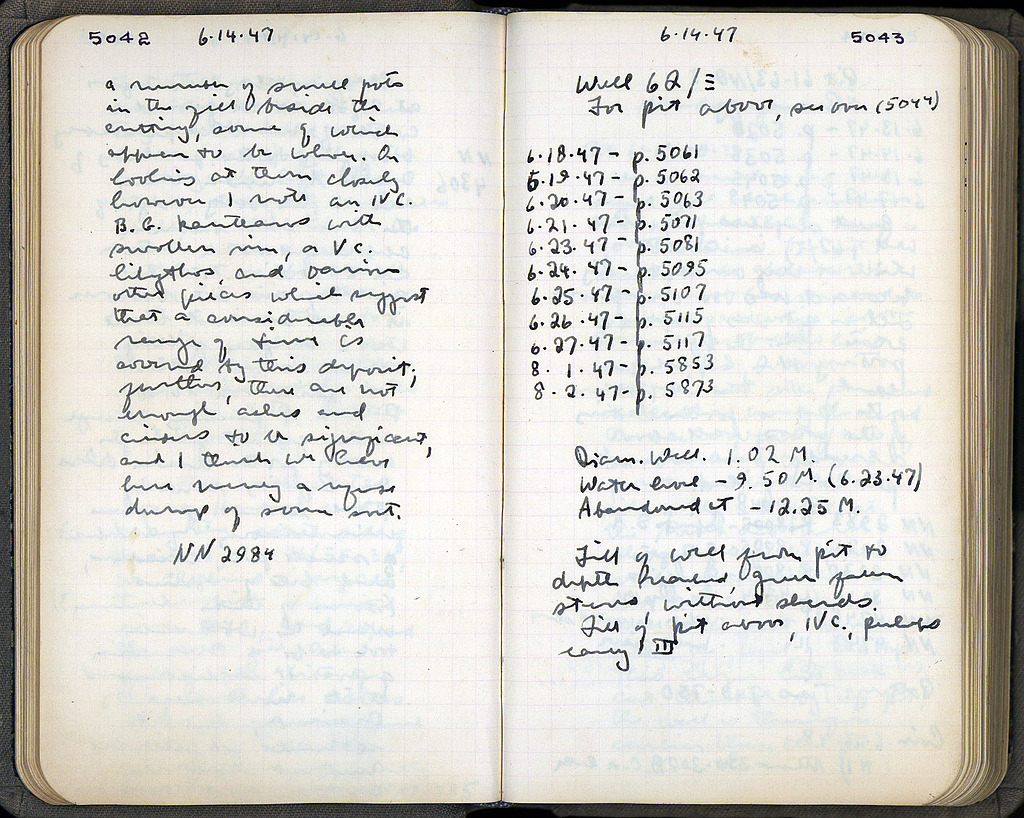 5042 6·14·47
a number of small pots
in the fill beside the
cutting, some of which
appear to be whole. On
looking at them closely
however I note an IVC.
B.G. kantharos with
swollen rim, a VC.
lekythos, and various
other pieces which suggest
that a considerable
range of time is
covered by this deposit;
further, there are not
enough ashes and
cinders to be significant,
and I think we have
here merely a refuse
dump of some sort.
NN 2984
6·14·47 5043
Well 62/Ξ
For pit above, see over (5044)
6·18·47 – p. 5061
6·19·47 – p. 5062
6·20·47 – p. 5063
6·21·47 – p. 5071
6·23·47 – p. 5081
6·24·47 – p. 5095
6·25·47 – p. 5107
6·26·47 – p. 5115
6·27·47 – p. 5117
8·1·47 – p. 5853
8·2·47 – p. 5873
Diam. Well. 1.02 M.
Water level – 9.50 M. (6.23.47)
Abandoned at – 12.25 M.
Fill of well from pit to
depth reached, green
stereo, without sherds.
Fill of pit above, IVC, perhaps
early III